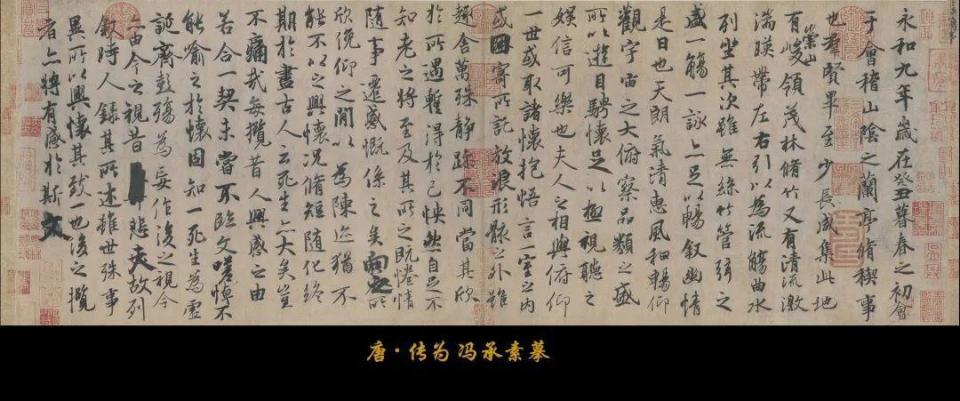 永和九年歲在癸丑暮春之初會
于會稽山陰之蘭亭脩稧事
也群賢畢至少長咸集此地
有崇山峻領茂林脩竹又有清流激
湍暎帶左右引以為流觴曲水
列坐其次雖無絲竹管弦之
盛一觴一詠亦足以暢敘幽情
是日也天朗氣清惠風和暢仰
觀宇宙之大俯察品類之盛
所以遊目騁懷足以極視聽之
娛信可樂也夫人之相與俯仰
一世或取諸懷抱悟言一室之內
或因寄所託放浪形骸之外雖
趣舍萬殊靜躁不同當其欣
於所遇暫得於己怏然自足不
知老之將至及其所之既惓情
隨事遷感慨係之矣向之所
欣俛仰之閒以為陳迹猶不
能不以之興懷況脩短隨化終
期於盡古人云死生亦大矣豈
不痛哉每攬昔人興感之由
若合一契未嘗不臨文嗟悼不
能喻之於懷固知一死生為虛
誕齊彭殤為妄作後之視今
亦由今之視昔悲夫故列
敘時人錄其所述雖世殊事
異所以興懷其致一也後之攬
者亦將有感於斯文
唐·传为冯承素摹